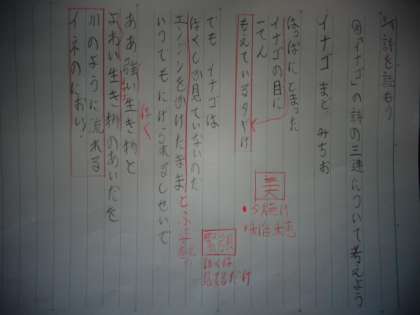 詩を読もう
「イナゴ」の詩の三連について考えよう
イナゴ まど みちお
はっぱにとまった
イナゴの目に
一てん
もえている夕やけ
でも イナゴは
ぼくしか見ていないのだ
エンジンをかけたまま
いつでもにげられるしせいで
ああ 強い生きものと
よわい生きもののあいだを
川のように流れる
イネのにおい!
美
緊張
ぼく